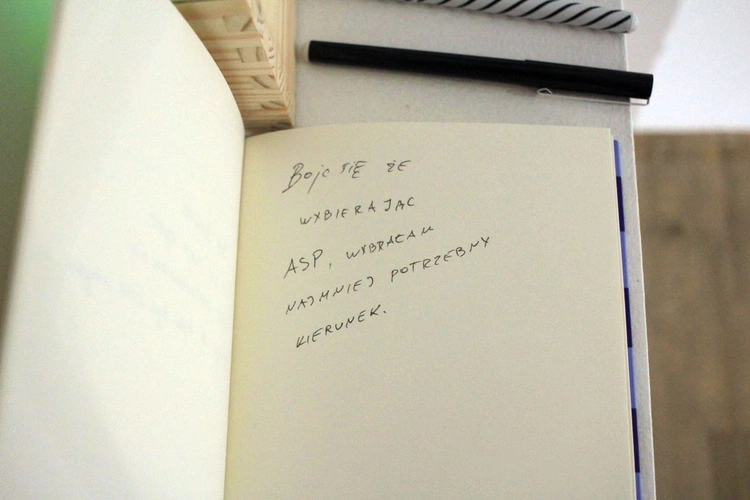 Boję SIĘ ŻE
WYBIERAJĄC
ASP, WYBRAŁAM
NAJMNIEJ POTRZEBNY
KIERUNEK.